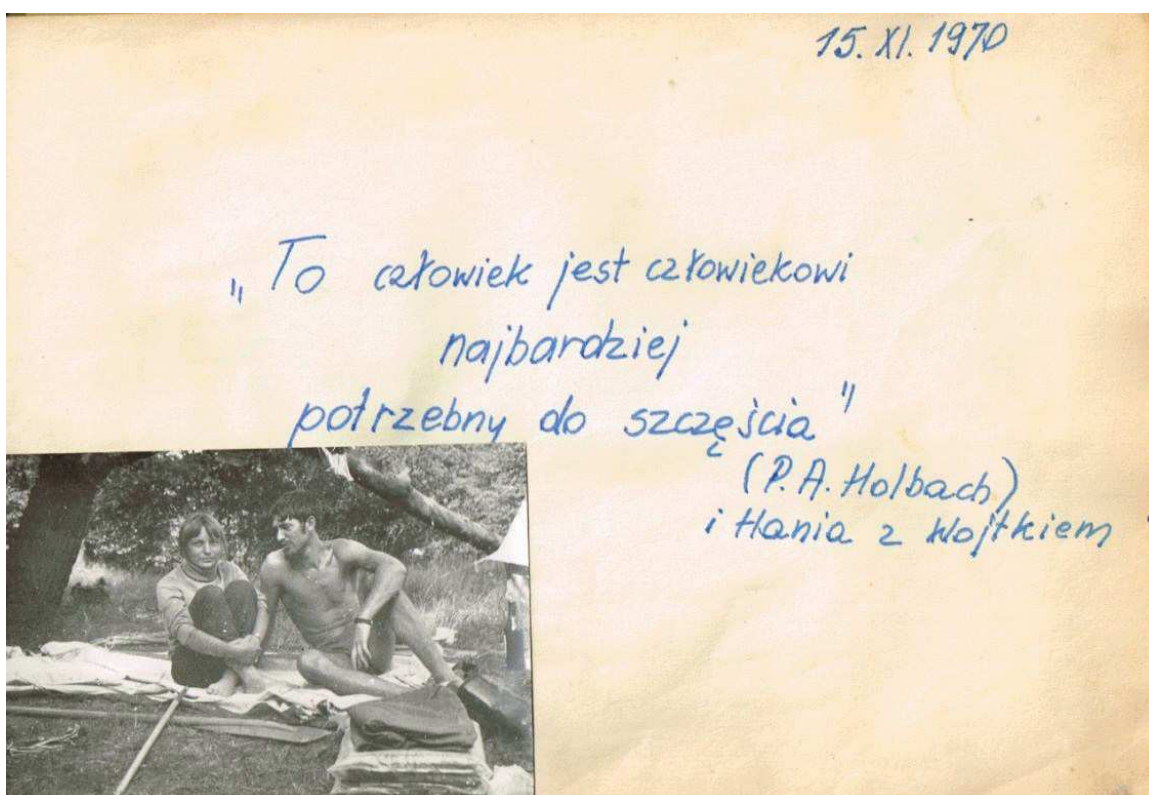 15. XI. 1970
„To człowiek jest człowiekowi
najbardziej
potrzebny do szczęścia"
(P. A. Holbach)
i Hania z Wojtkiem